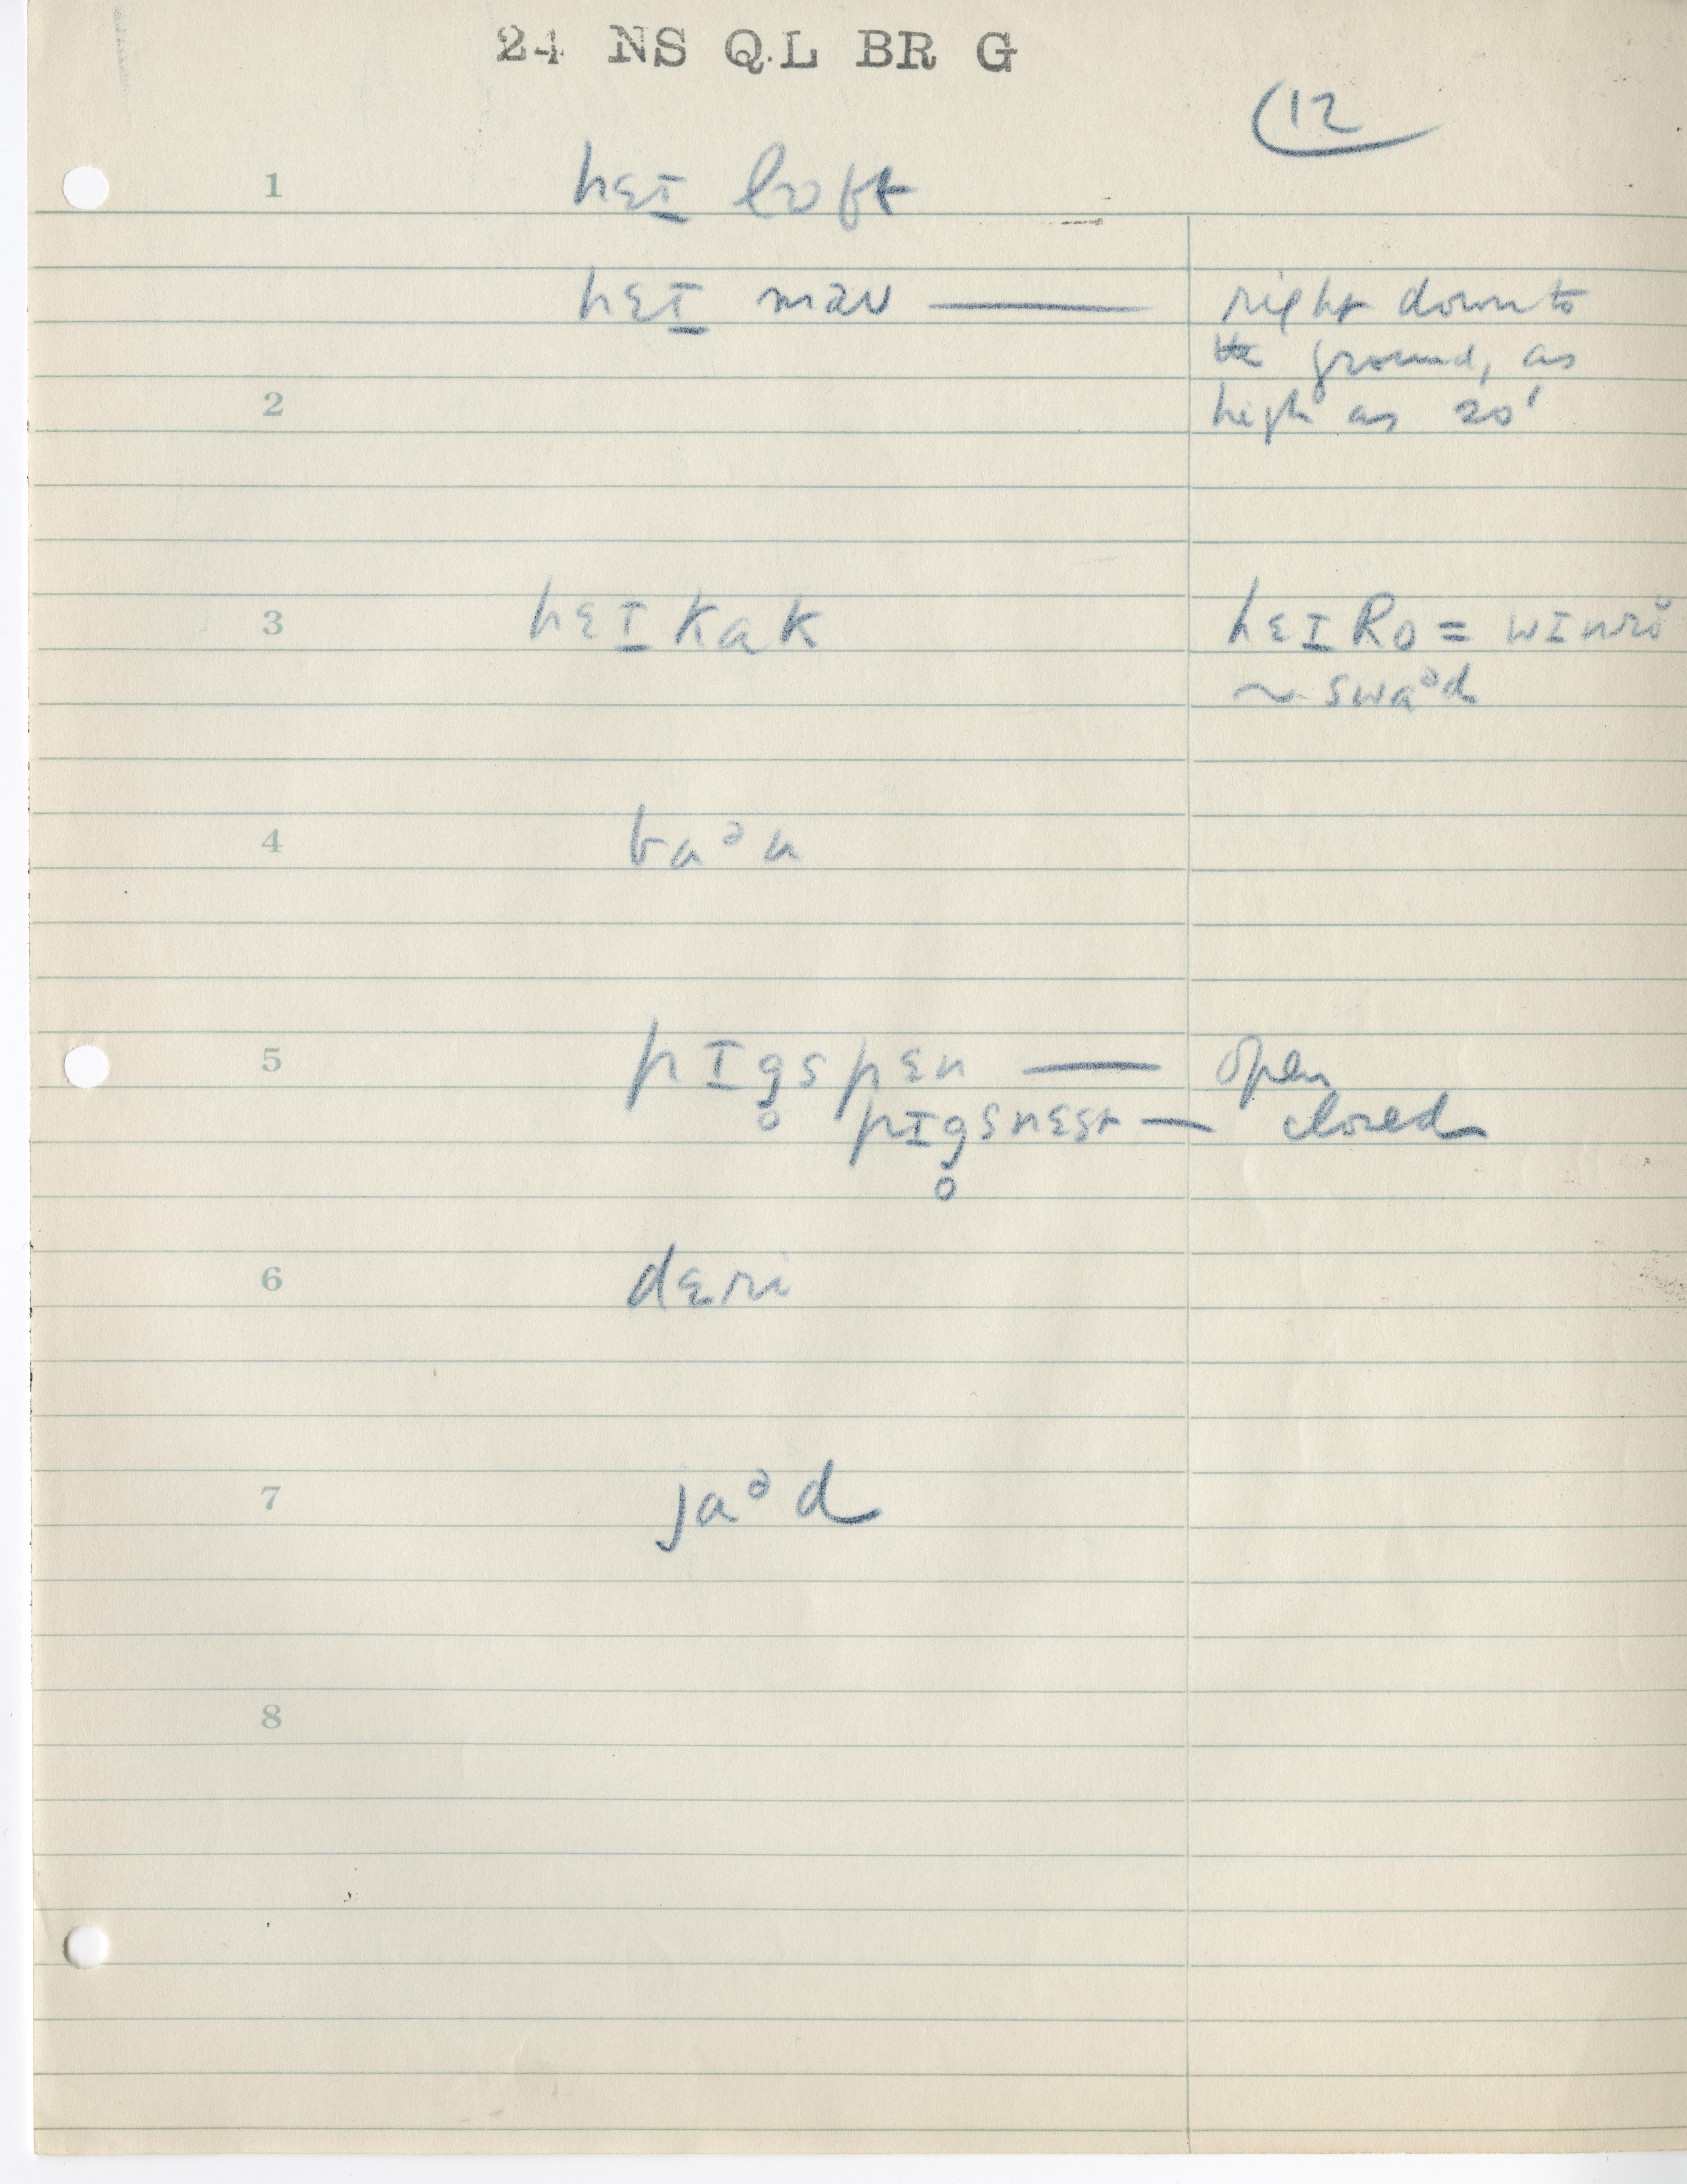 24 NS QL BR G
12
1 hɛɪ lɒft
hɛɪ maʊ — right down to
the ground, as
2 high as 20'
3 hɛɪ kak hɛɪ Ro =
~ swaᵊd
4 baᵊn
5 pɪg̥spɛn — open
pɪg̥snɛst — closed
6 dɛri
7 jaᵊd
8